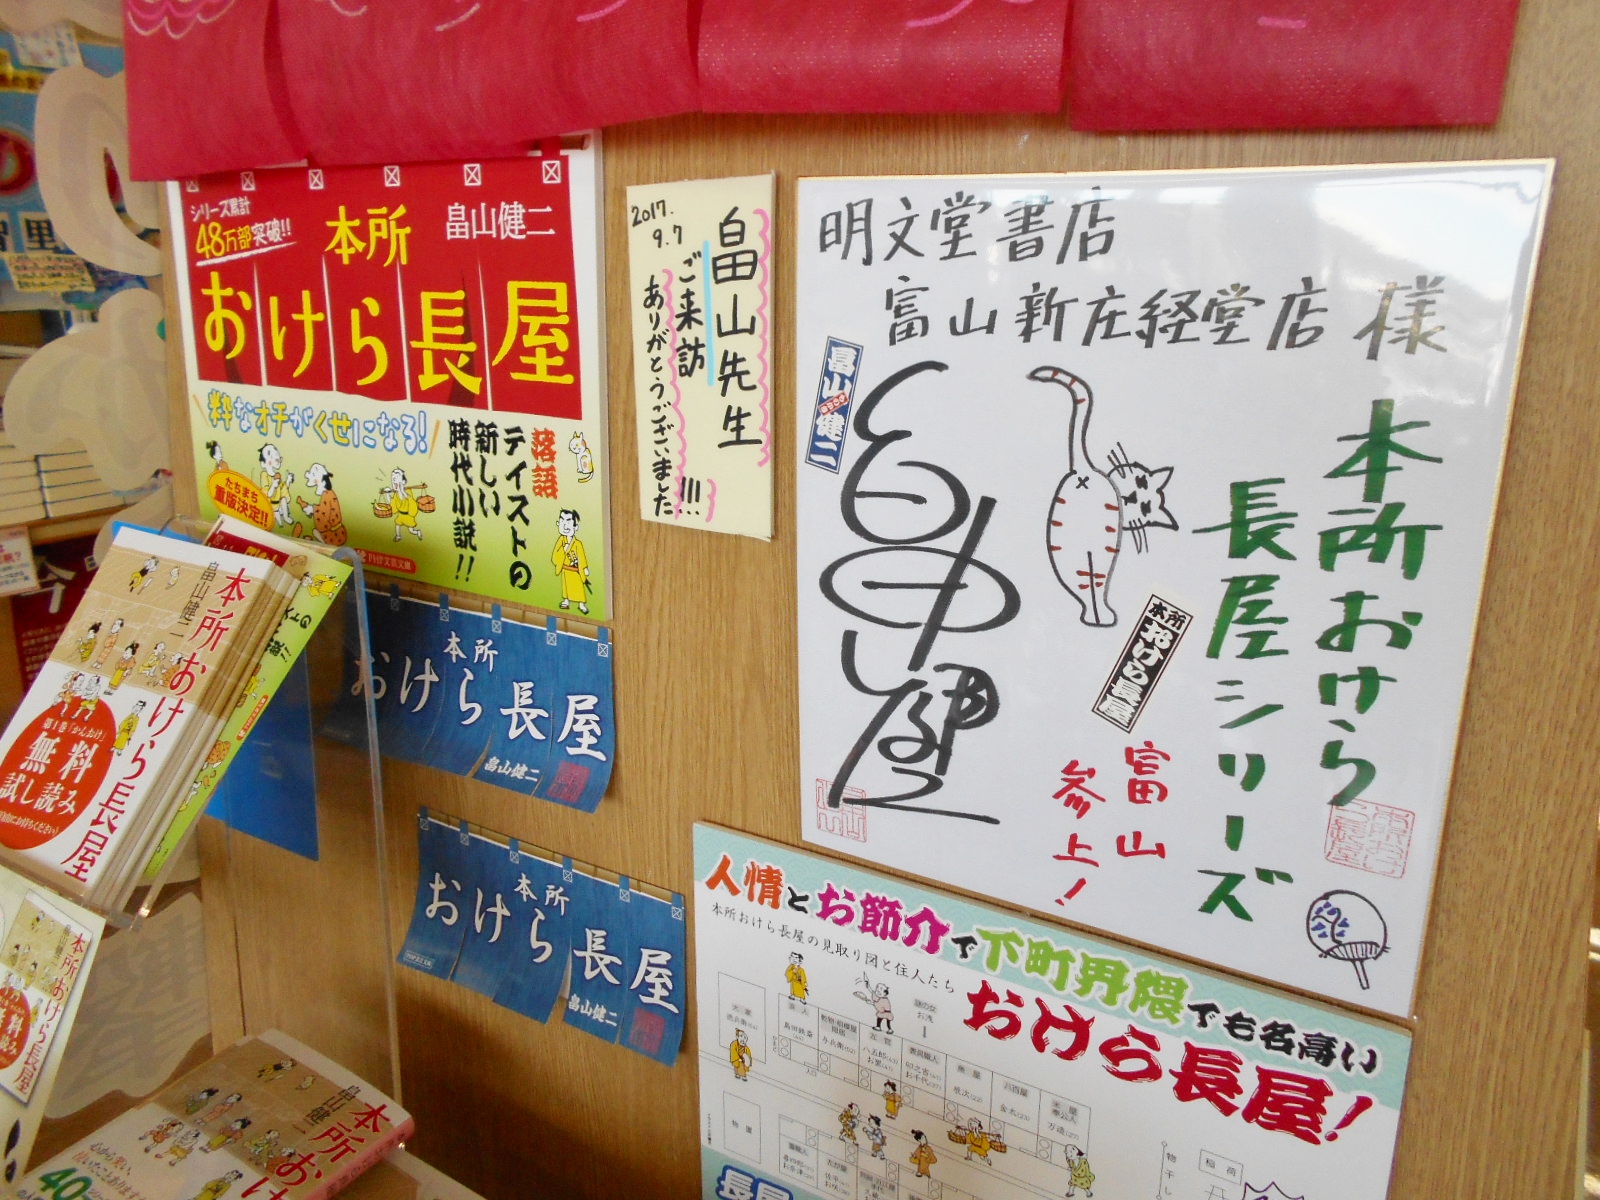 シリーズ累計
48万部突破!!
本所
畠山健二
おけら長屋
粋なオチがくせになる!
落語
テイストの
新しい
時代小説!!
たちまち
重版決定!!
PHP文芸文庫
2017.
9.7
畠山先生
ご来訪
ありがとうございました!!!
明文堂書店
富山新庄経堂店 様
畠山健二
本所おけら
長屋シリーズ
本所
おけら長屋
富山
参上!
本所
おけら長屋
畠山健二
本所
おけら長屋
畠山健二
本所おけら長屋
畠山健二
第1巻「かんおけ」
無料
試し読み
本所おけら長屋
畠山健二
本所おけ
畠山健二
40
人情とお節介で下町界隈でも名高い
おけら長屋!
本所おけら長屋の見取り図と住人たち
大家
浪人
島田鉄斎
左官
八五郎
お里
魚屋
八百屋
金太
米屋
万造
物置
物干し
稲荷
長屋